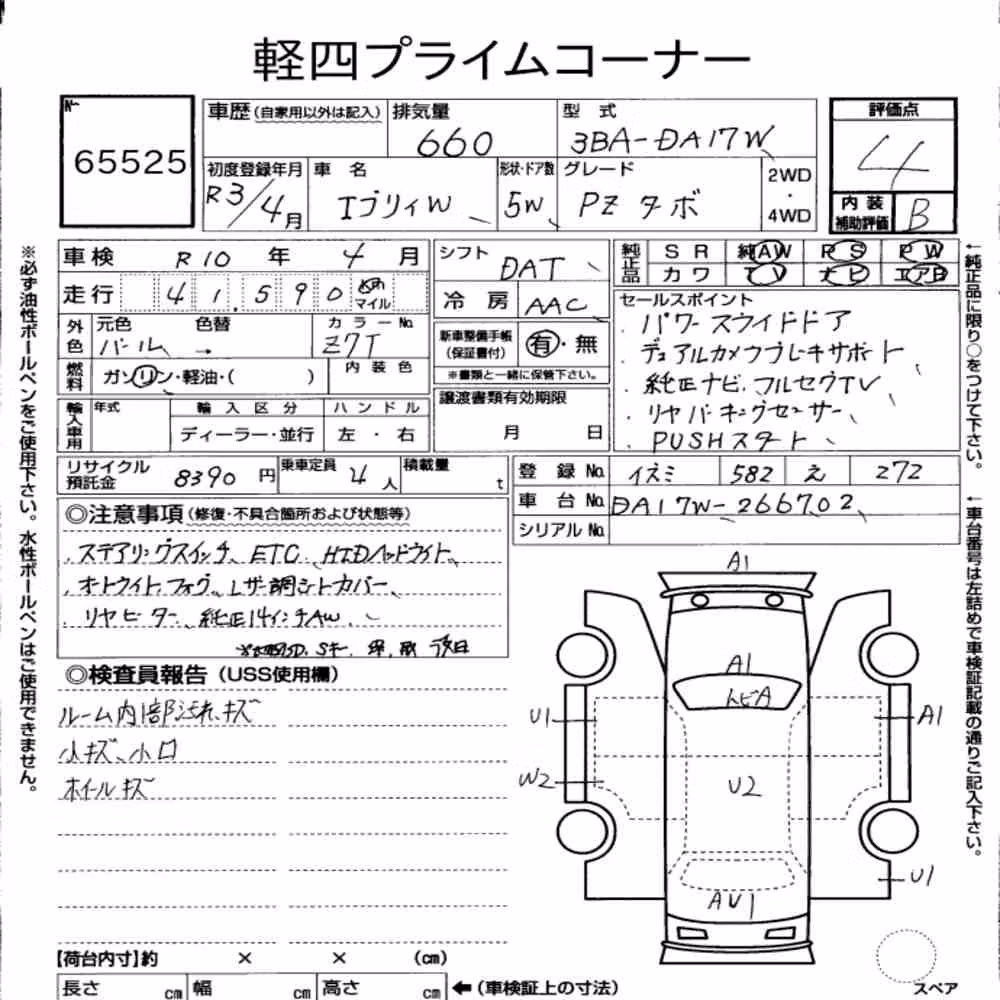 軽四プライムコーナー
No.
65525
車歴(自家用以外は記入)
排気量
660
型式
3BA-DA17W
評価点
4
初度登録年月
R3/4月
車名
エブリィW
形状・ドア数
5W
グレード
PZ ターボ
2WD
・
4WD
内装
補助評価
B
車検 R10 年 4 月
シフト
DAT
純正品
SR 純AW PS PW
カワ TV ナビ エアB
走行 41,590 km
マイル
冷房 AAC
セールスポイント
・パワースライドドア
・デュアルカメラブレーキサポート
・純正ナビ、フルセグTV
・リヤパーキングセンサー
・PUSHスタート
外色
元色 色替
パール →
カラーNo.
Z7T
新車整備手帳
(保証書付)
有・無
※書類と一緒に保管下さい。
燃料
ガソリン・軽油・( )
内装色
譲渡書類有効期限
月 日
輸入車用
年式
輸入区分
ディーラー・並行
ハンドル
左・右
リサイクル
預託金
8390 円
乗車定員
4人
積載量
t
登録No. イズミ 582 え 272
車台No. DA17W-266702
シリアルNo.
◎注意事項(修復・不具合箇所および状態等)
・ステアリングスイッチ、ETC、HIDヘッドライト、
オートライト、フォグ、レザー調シートカバー、
リヤヒーター、純正14インチAW、
後日
◎検査員報告(USS使用欄)
ルーム内部汚れ、キズ
小キズ、小凹
ホイールキズ
A1
A1
トビA
U1
A1
W2
U2
U1
AU1
スペア
【荷台内寸】約 × × (cm)
長さ cm 幅 cm 高さ cm ←(車検証上の寸法)
※必ず油性ボールペンをご使用下さい。水性ボールペンはご使用できません。
←純正品に限り○をつけて下さい。
←車台番号は左詰めで車検証記載の通りご記入下さい。